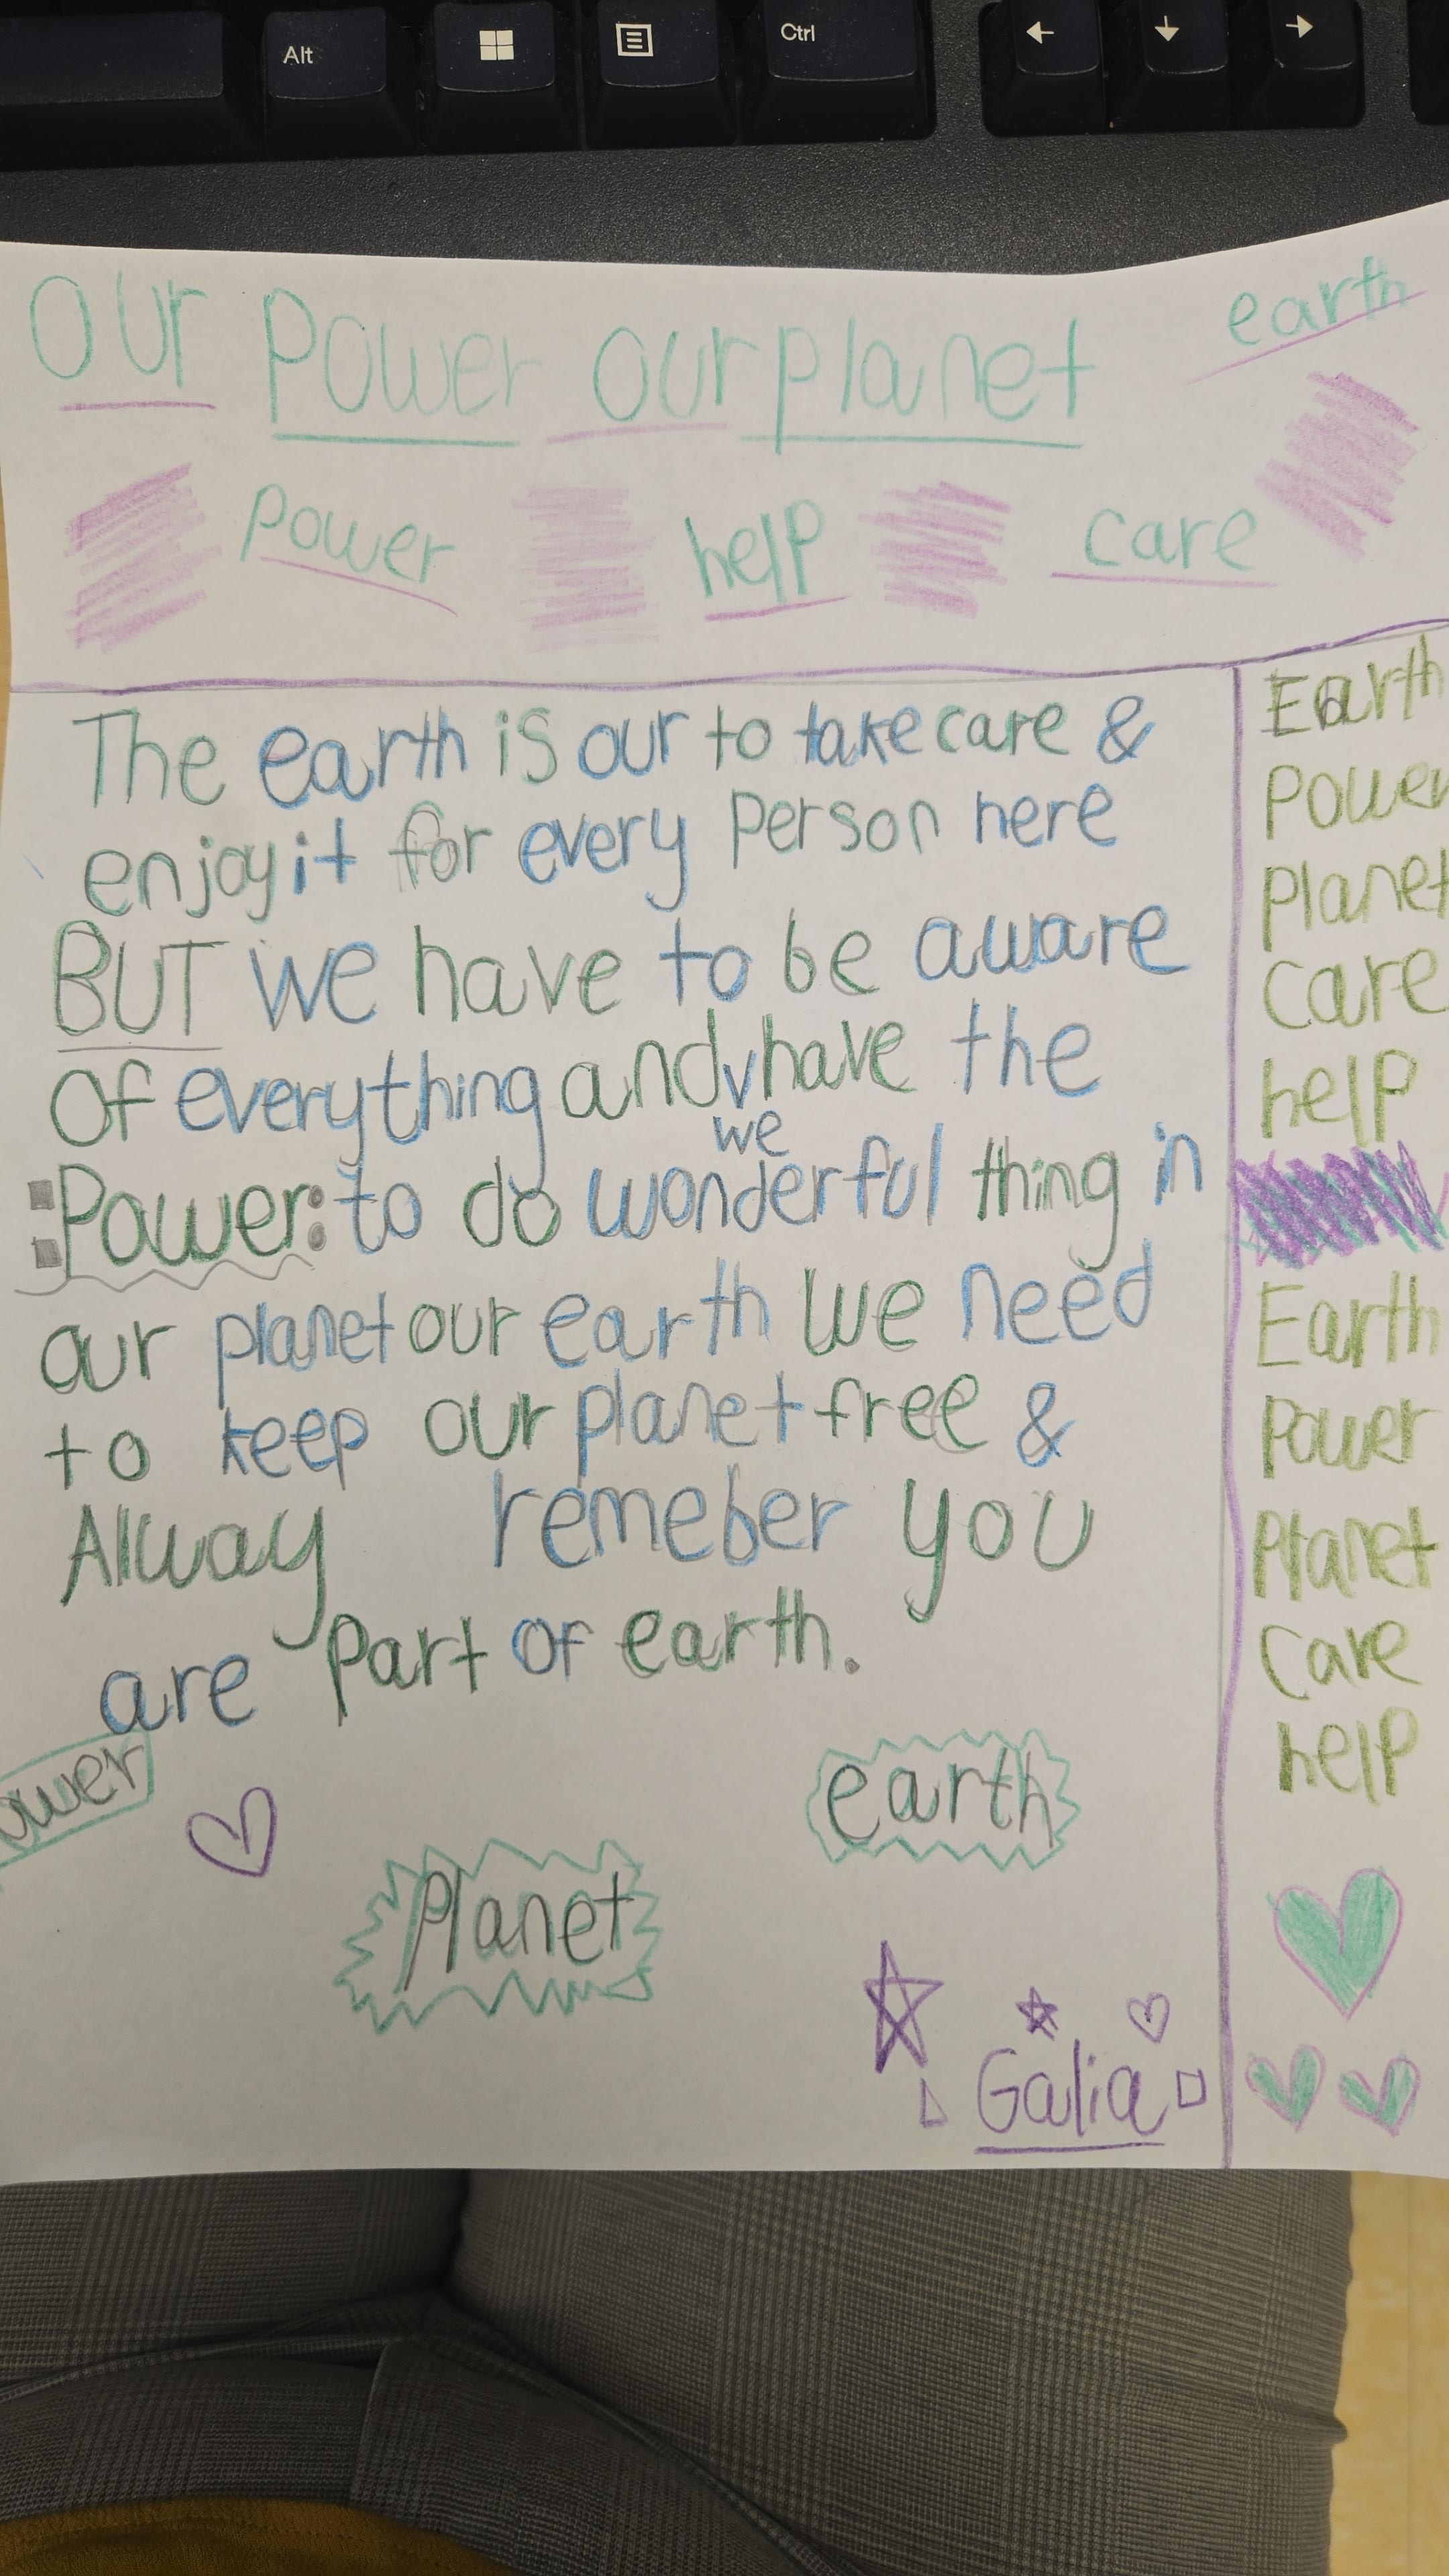 Alt
Ctrl
our Power our planet
earth
Power help care
The earth is our to take care &
enjoy it for every Person here
BUT we have to be aware
Of everything and we have the
:Power: to do wonderful thing in
our planet our earth we need
to keep our planet free &
Allway remeber you
are Part of earth.
ower
earth
Planet
Galia
Earth
Power
Planet
Care
help
Earth
Power
Planet
Care
help